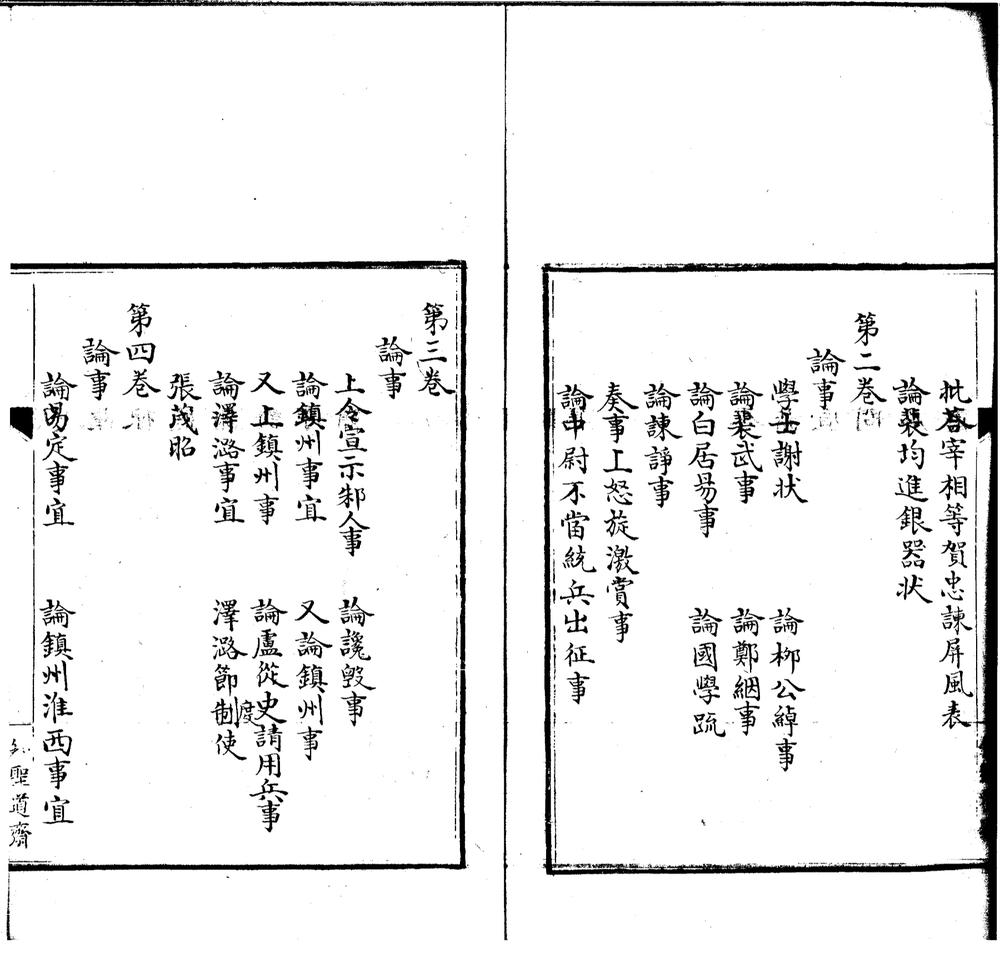 批荅宰相等賀忠諫屏風表
論裴均進銀器状
第二卷
論事
學士謝状　論柳公綽事
論裴武事　論鄭絪事
論白居易事　論國學疏
論諫諍事
奏事上怒旋激賞事
論中尉不當統兵出征事
第三卷
論事
上令宣示制人事　論讒毀事
論鎮州事宜　又論鎮州事
又上鎮州事　論盧從史請用兵事
論澤潞事宜　澤潞節制度使
張茂昭
第四卷
論事
論易定事宜　論鎮州淮西事宜
聖道齋